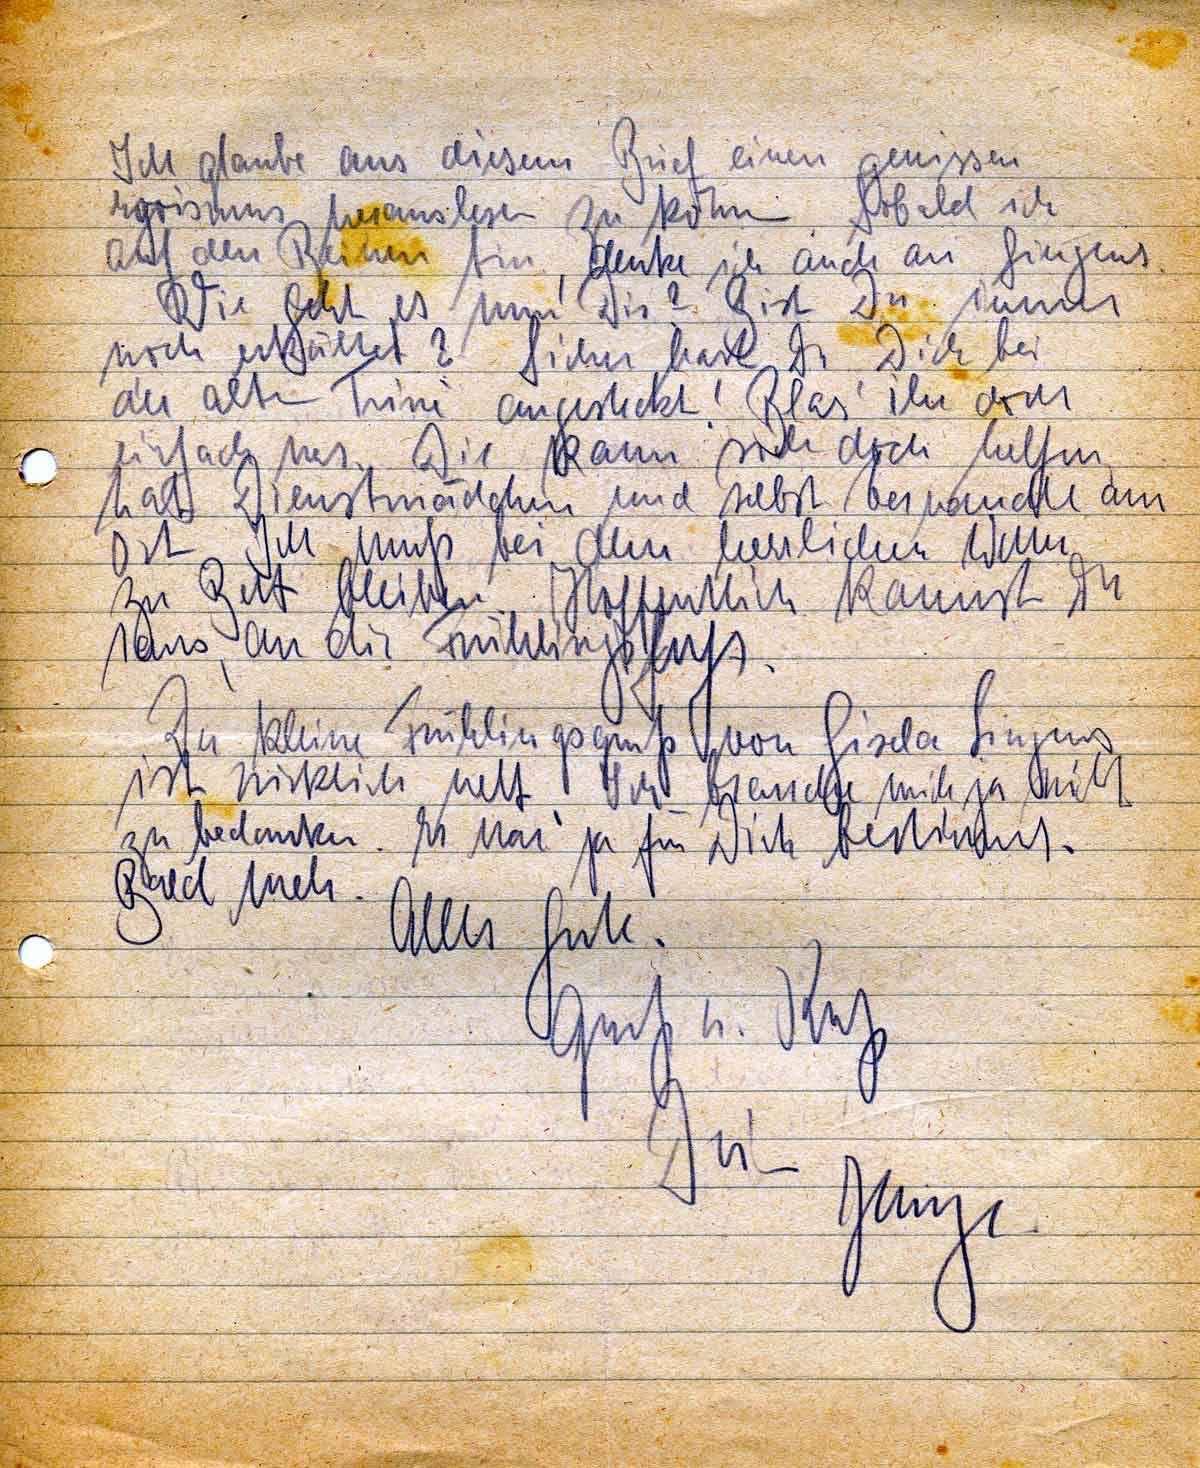 Ich glaube aus diesem Brief einen gewissen
Egoismus herauslesen zu könn. Sobald ich
auf den Beinen bin, denke ich auch an Singens.
Wie geht es nun Dir? Bist Du immer
noch erkältet? Sicher hast Du Dich bei
der alten Trine angesteckt! Blas' ihr doch
einfach was. Die kann sich doch helfen,
hat Dienstmädchen und selbst Verwandte am
Ort. Ich muß bei dem herrlichen Wetter
zu Bett bleiben. Hoffentlich kannst Du
raus, an die Frühlingsluft.
Der kleine Frühlingsgruß von Gisela Singens
ist wirklich nett. Ich brauche mich ja nicht
zu bedanken. Er war ja für Dich bestimmt.
Bald mehr.
Alles Gute.
Gruß u. Kuß
Dein
Junge